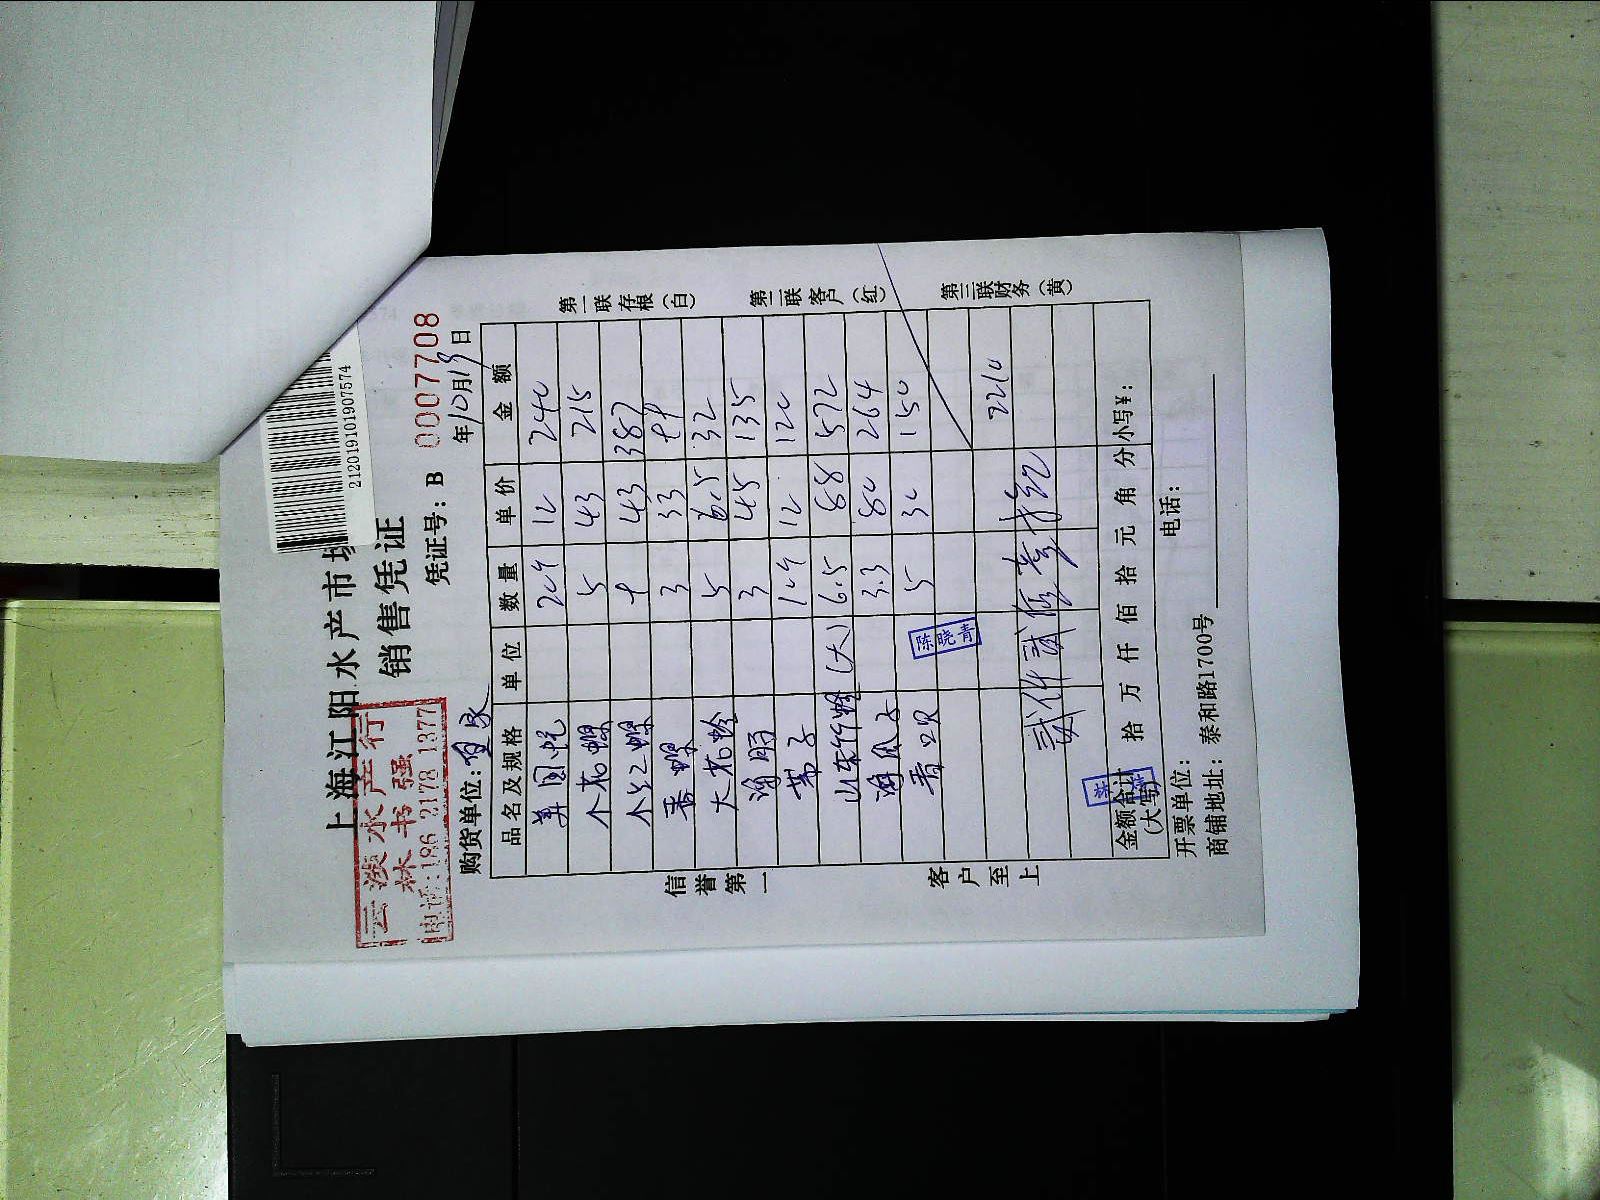 212019101907574
上海江阳水产市场
销售凭证
云 水产行
林书强
电话:186 2178 1377
凭证号：B 0007708
购货单位：
年10月19日
品名及规格 单位 数量 单价 金额
美国 12 240
个花螺 5 43 215
个红螺 9 43 387
香螺 3 33 99
大花蛤 5 6.5 32
海肠 3 45 135
带子 12 120
山东竹蛏（大） 6.5 88 572
海瓜子 3.3 80 264
青口贝 5 30 150
陈晓青
2210
贰仟贰佰壹拾元
金额合计（大写） 拾 万 仟 佰 拾 元 角 分 小写¥：
开票单位：
电话：
商铺地址：泰和路1700号
信誉第一
客户至上
第一联存根（白）
第二联客户（红）
第三联财务（黄）